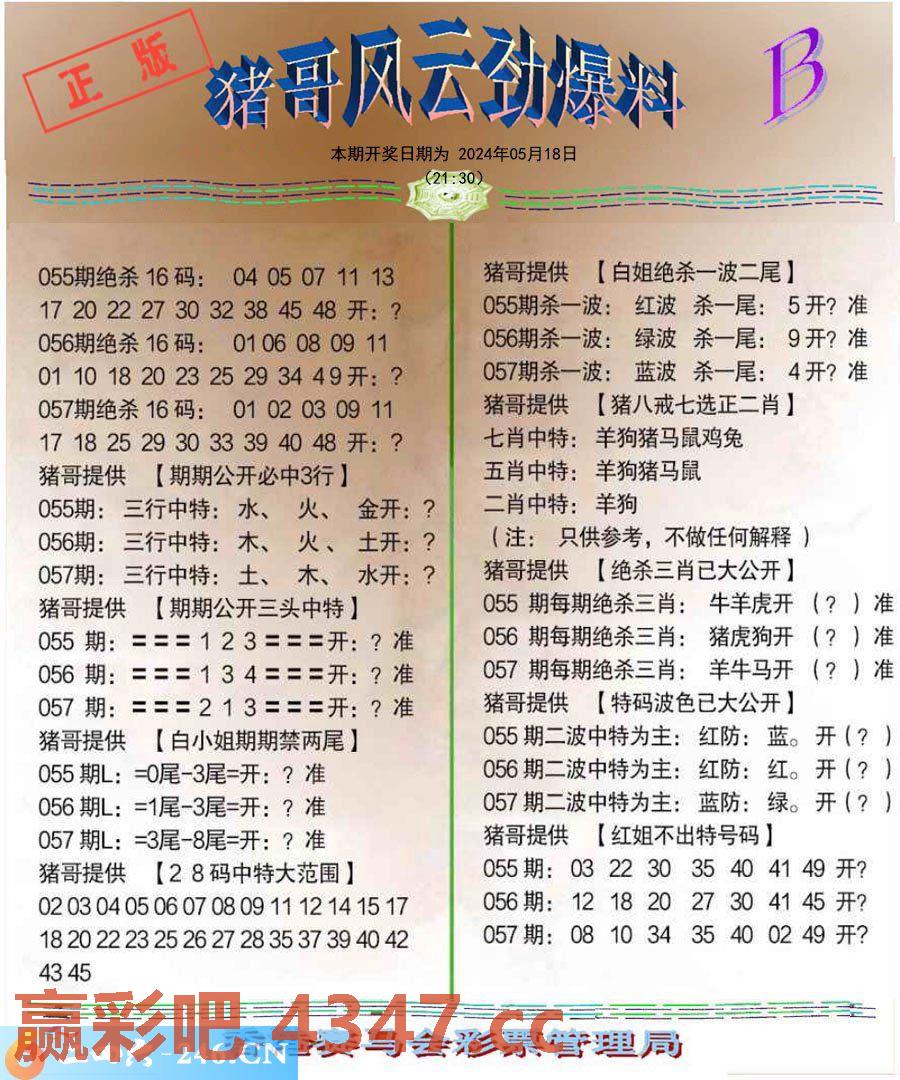 正版
猪哥风云劲爆料
B
本期开奖日期为 2024年05月18日
(21:30)
055期绝杀16码： 04 05 07 11 13
17 20 22 27 30 32 38 45 48 开：?
056期绝杀16码： 01 06 08 09 11
01 10 18 20 23 25 29 34 49开：?
057期绝杀16码： 01 02 03 09 11
17 18 25 29 30 33 39 40 48 开：?
猪哥提供 【期期公开必中3行】
055期：三行中特：水、 火、 金开：?
056期：三行中特：木、 火、 土开：?
057期：三行中特：土、 木、 水开：?
猪哥提供 【期期公开三头中特】
055 期：===123===开：? 准
056 期：===134===开：? 准
057 期：===213===开：? 准
猪哥提供 【白小姐期期禁两尾】
055期L：=0尾-3尾=开：? 准
056期L：=1尾-3尾=开：? 准
057期L：=3尾-8尾=开：? 准
猪哥提供 【28码中特大范围】
02 03 04 05 06 07 08 09 11 12 14 15 17
18 20 22 23 25 26 27 28 35 37 39 40 42
43 45
猪哥提供 【白姐绝杀一波二尾】
055期杀一波： 红波 杀一尾： 5开? 准
056期杀一波： 绿波 杀一尾： 9开? 准
057期杀一波： 蓝波 杀一尾： 4开? 准
猪哥提供 【猪八戒七选正二肖】
七肖中特： 羊狗猪马鼠鸡兔
五肖中特： 羊狗猪马鼠
二肖中特： 羊狗
（注： 只供参考，不做任何解释 ）
猪哥提供 【绝杀三肖已大公开】
055 期每期绝杀三肖： 牛羊虎开 （？）准
056 期每期绝杀三肖： 猪虎狗开 （？）准
057 期每期绝杀三肖： 羊牛马开 （？）准
猪哥提供 【特码波色已大公开】
055期二波中特为主：红防：蓝。开(？)
056期二波中特为主：红防：红。开(？)
057期二波中特为主：蓝防：绿。开(？)
猪哥提供 【红姐不出特号码】
055期： 03 22 30 35 40 41 49 开?
056期： 12 18 20 27 30 41 45 开?
057期： 08 10 34 35 40 02 49 开?
赢彩吧 4347.cc
赛马会彩票管理局